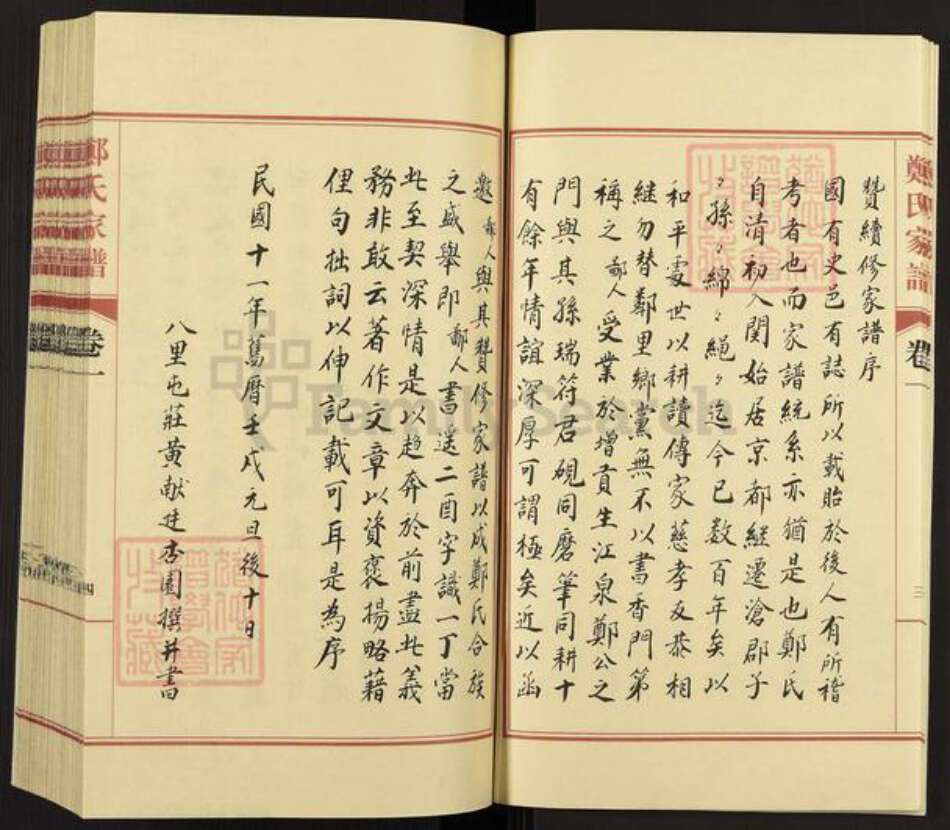 鄭氏家譜
卷一
三
贊續修家譜序
國有史邑有誌所以載貽於後人有所稽
考者也而家譜統系亦猶是也鄭氏
自清初入関始居京都継遷滄郡子
〻孫〻綿〻繩〻迄今已数百年矣以
和平處世以耕讀傳家慈孝友恭相
継勿替鄰里鄉黨無不以書香門第
稱之鄙人受業於增貢生江泉鄭公之
門與其孫瑞符君硯同磨筆同耕十
有餘年情誼深厚可謂極矣近以函
邀鄙人與其贊修家譜以成鄭氏合族
之盛舉即鄙人書遜二酉字識一丁當
此至契深情是以趋奔於前盡此義
務非敢云著作文章以資褒揚略藉
俚句拙詞以伸記載可耳是為序
民國十一年舊曆壬戌元旦後十日
八里屯莊黃献廷杏園撰并書
鄭氏家譜
卷一
四
FamilySearch